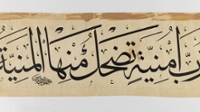 رب امنية تضحك منها المنية